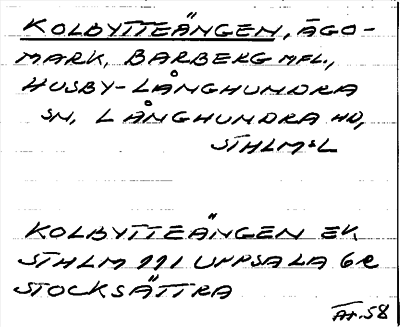 KOLBYTTEÄNGEN, ÄGO-
MARK, BARBERG MFL,
HUSBY-LÅNGHUNDRA
SN, LÅNGHUNDRA HD,
STHLMS L
KOLBYTTEÄNGEN EK
STHLM 111 UPPSALA 6e
STOCKSÄTTRA
58